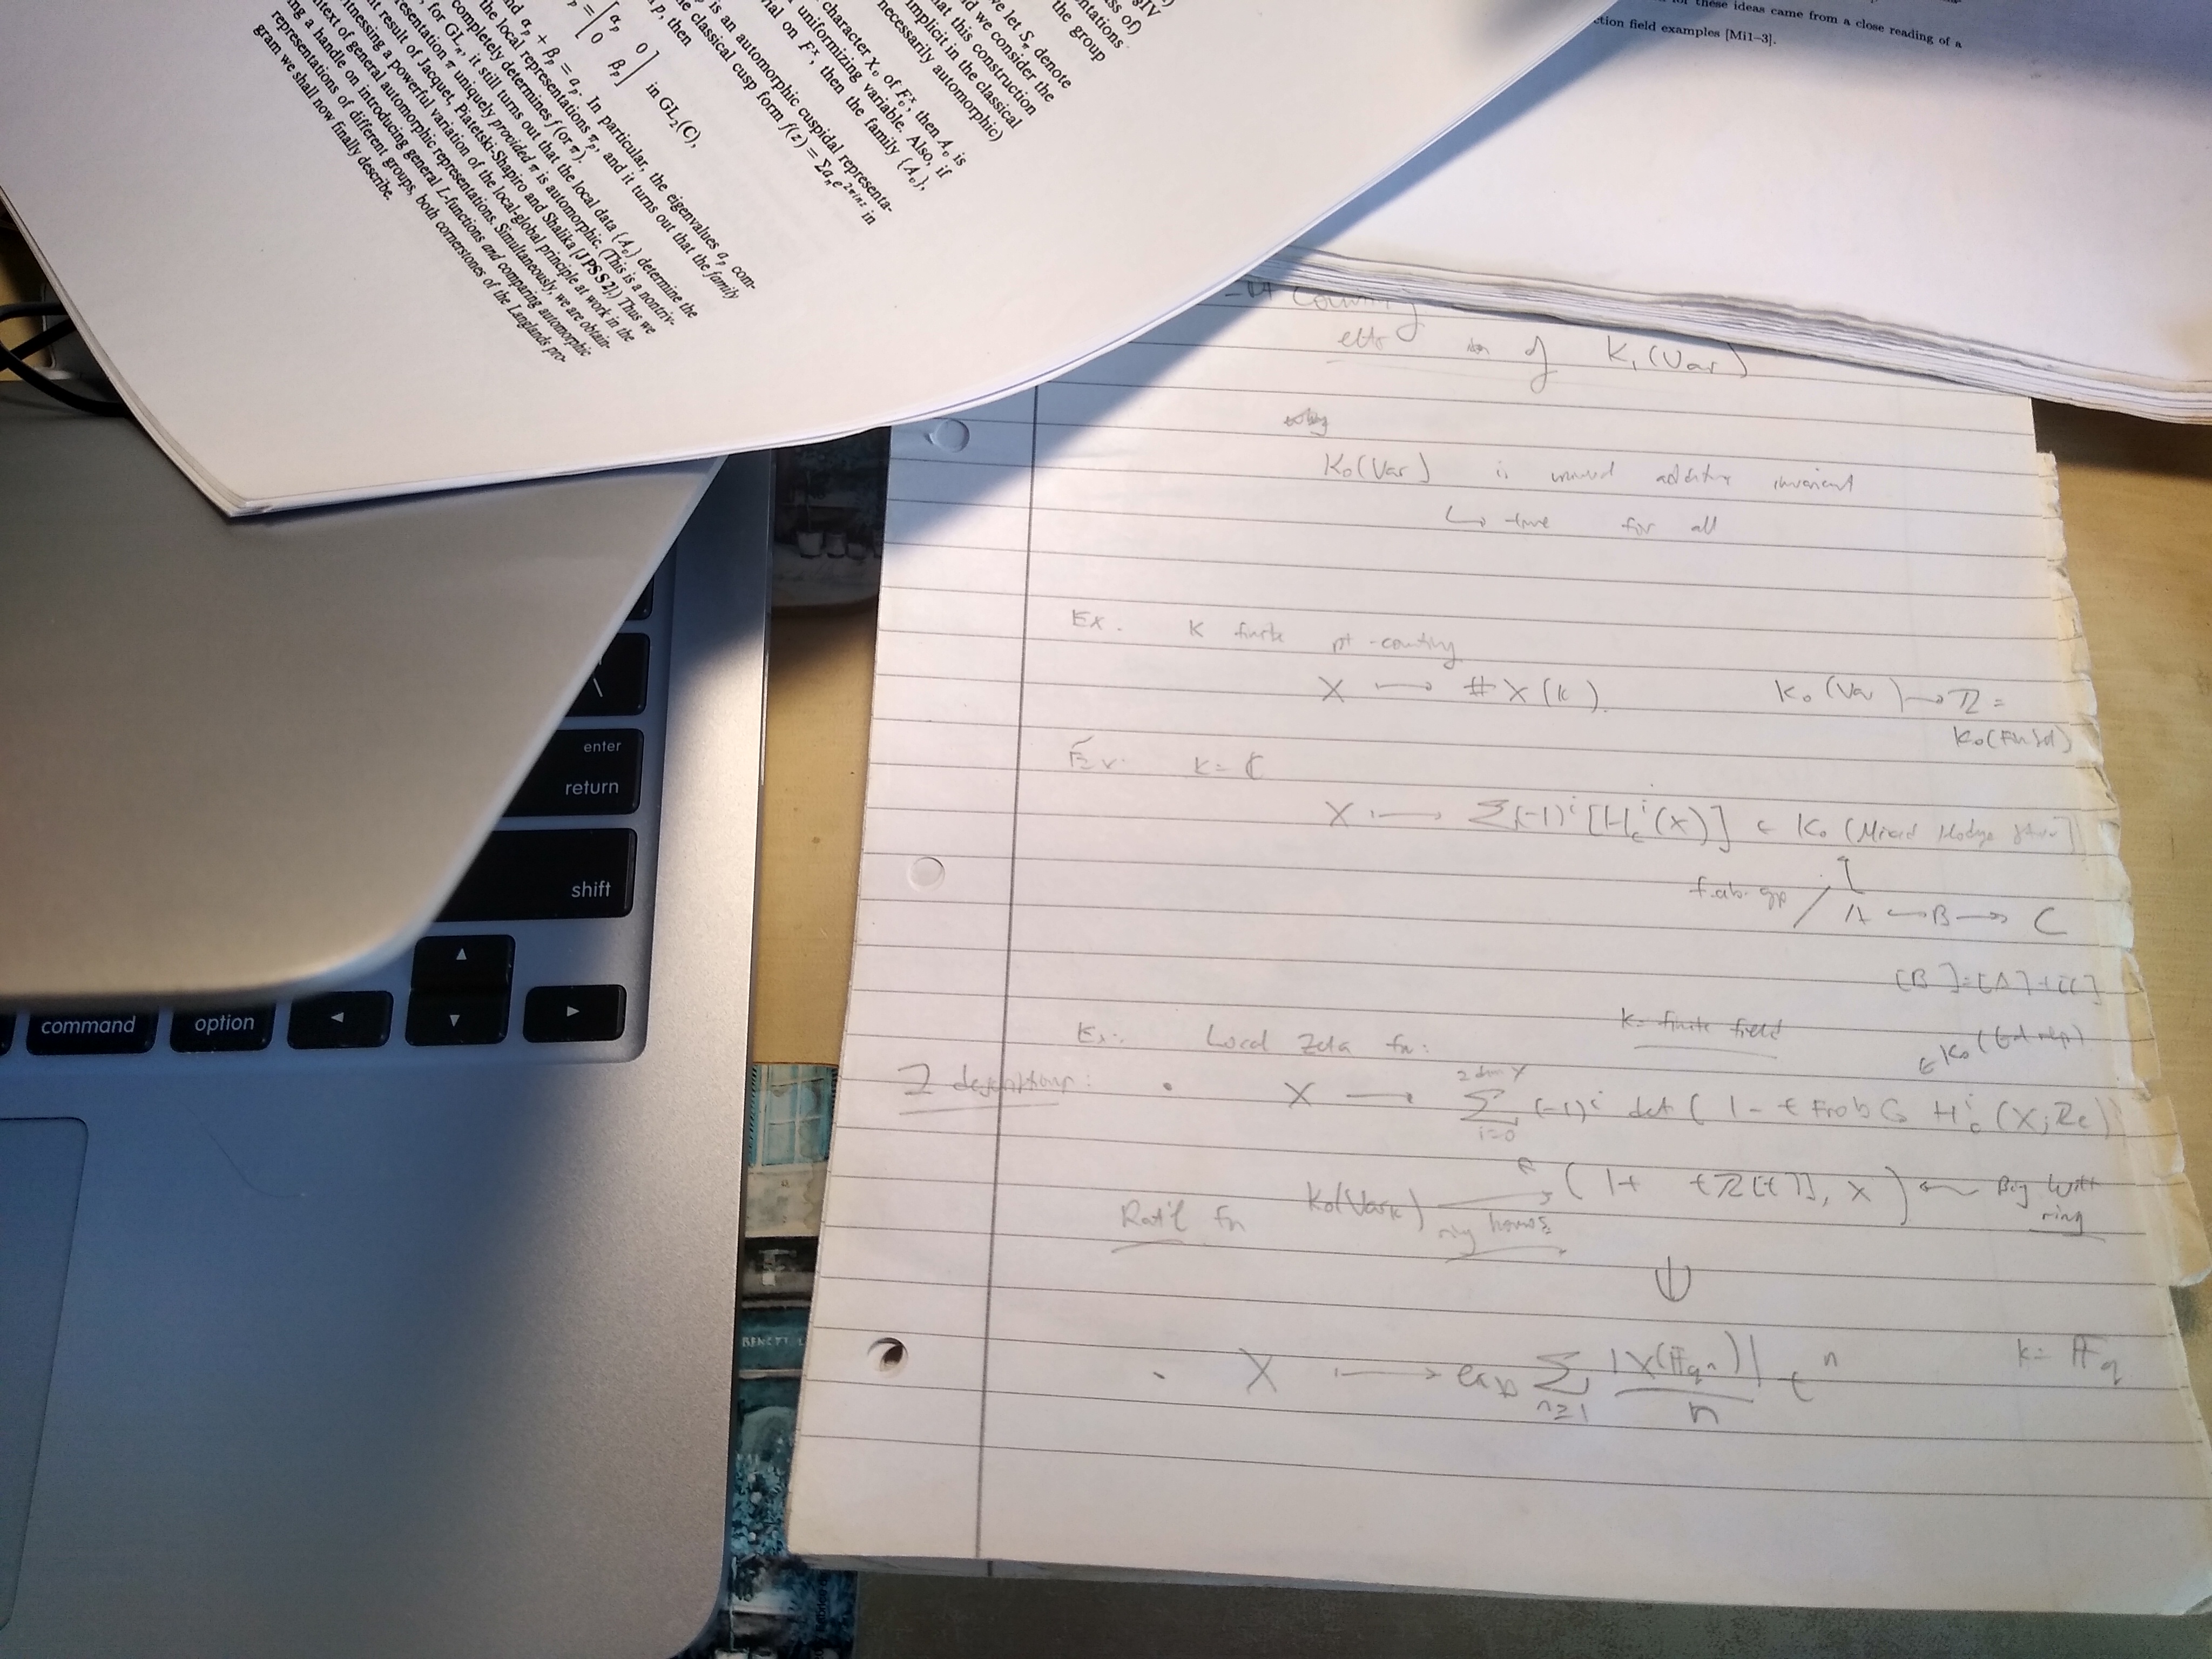 gIV
ss of)
ntations
the group
we let Sπ denote
d we consider the
hat this construction
implicit in the classical
necessarily automorphic)
character χᵥ of Fᵥˣ, then Aᵥ is
uniformizing variable. Also, if
ial on Fˣ, then the family {Aᵥ},
is an automorphic cuspidal representa-
e classical cusp form f(z) = Σaₙe^{2πinz} in
p, then
p = [αp 0
0 βp] in GL₂(C),
nd αp + βp = ap. In particular, the eigenvalues ap com-
the local representations πp, and it turns out that the family
completely determines f (or π).
for GLₙ, it still turns out that the local data {Aᵥ} determine the
resentation π uniquely provided π is automorphic. (This is a nontriv-
nt result of Jacquet, Piatetski-Shapiro and Shalika [JPSS2].) Thus we
itnessing a powerful variation of the local-global principle at work in the
ntext of general automorphic representations. Simultaneously, we are obtain-
ing a handle on introducing general L-functions and comparing automorphic
representations of different groups, both cornerstones of the Langlands pro-
gram we shall now finally describe.
for these ideas came from a close reading of a
ction field examples [Mi1–3].
elts of K₁(Var)
K₀(Var) is additive invariant
↳ true for all
Ex. K finite pt-counting
X ⟼ #X(k). K₀(Var) → ℤ =
K₀(FinSet)
Ex. k = ℂ
X ⟼ Σ(-1)ⁱ[H_cⁱ(X)] ∈ K₀(Mixed Hodge
f. ab. gp / A ↪ B → C
[B] = [A] + [C]
Ex. Local Zeta fn: k = finite field
2 descriptions: • X ⟼ Σ_{i=0}^{2 dim X} (-1)ⁱ det(1 - t Frob G H_cⁱ(X; ℤℓ)
Rat'l fn K₀(Var_k) ring homs (1 + tℤ[[t]], ×) ← Big Witt
ring
• X ⟼ exp Σ_{n≥1} |X(𝔽_{qⁿ})|/n tⁿ k = 𝔽_q
enter
return
shift
command
option